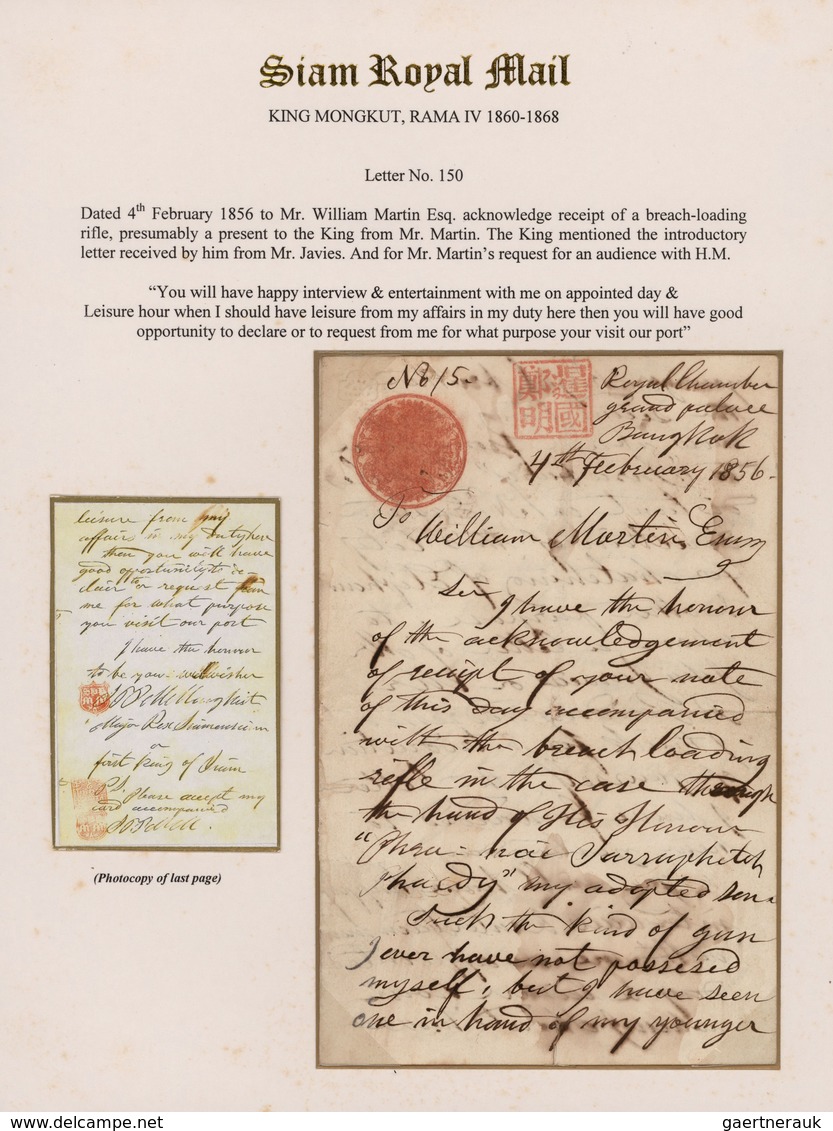 Siam Royal Mail
KING MONGKUT, RAMA IV 1860-1868
Letter No. 150
Dated 4th February 1856 to Mr. William Martin Esq. acknowledge receipt of a breach-loading
rifle, presumably a present to the King from Mr. Martin. The King mentioned the introductory
letter received by him from Mr. Javies. And for Mr. Martin's request for an audience with H.M.
“You will have happy interview & entertainment with me on appointed day &
Leisure hour when I should have leisure from my affairs in my duty here then you will have good
opportunity to declare or to request from me for what purpose your visit our port”
No 15
暹國
鄭明
Royal Chamber
grand palace
Bangkok
4th February 1856.
To William Martin
Sir I have the honour
of the acknowledgement
of receipt of your note
of this day accompanied
with the breach loading
rifle in the case through
the hand of His Honour
"Phra-
my adopted son.
Such the kind of gun
I ever have not possesed
myself, but I have seen
one in hand of my younger
leisure from my
affairs in my duty here
then you will have
good opportunity to de-
clair or to request from
me for what purpose
you visit our port
I have the honour
to be your wellwisher
Major Rex Siamensium
or
first king of Siam
P.S. Please accept my
card accompanied
(Photocopy of last page)
www.delcampe.net
gaertnerauk